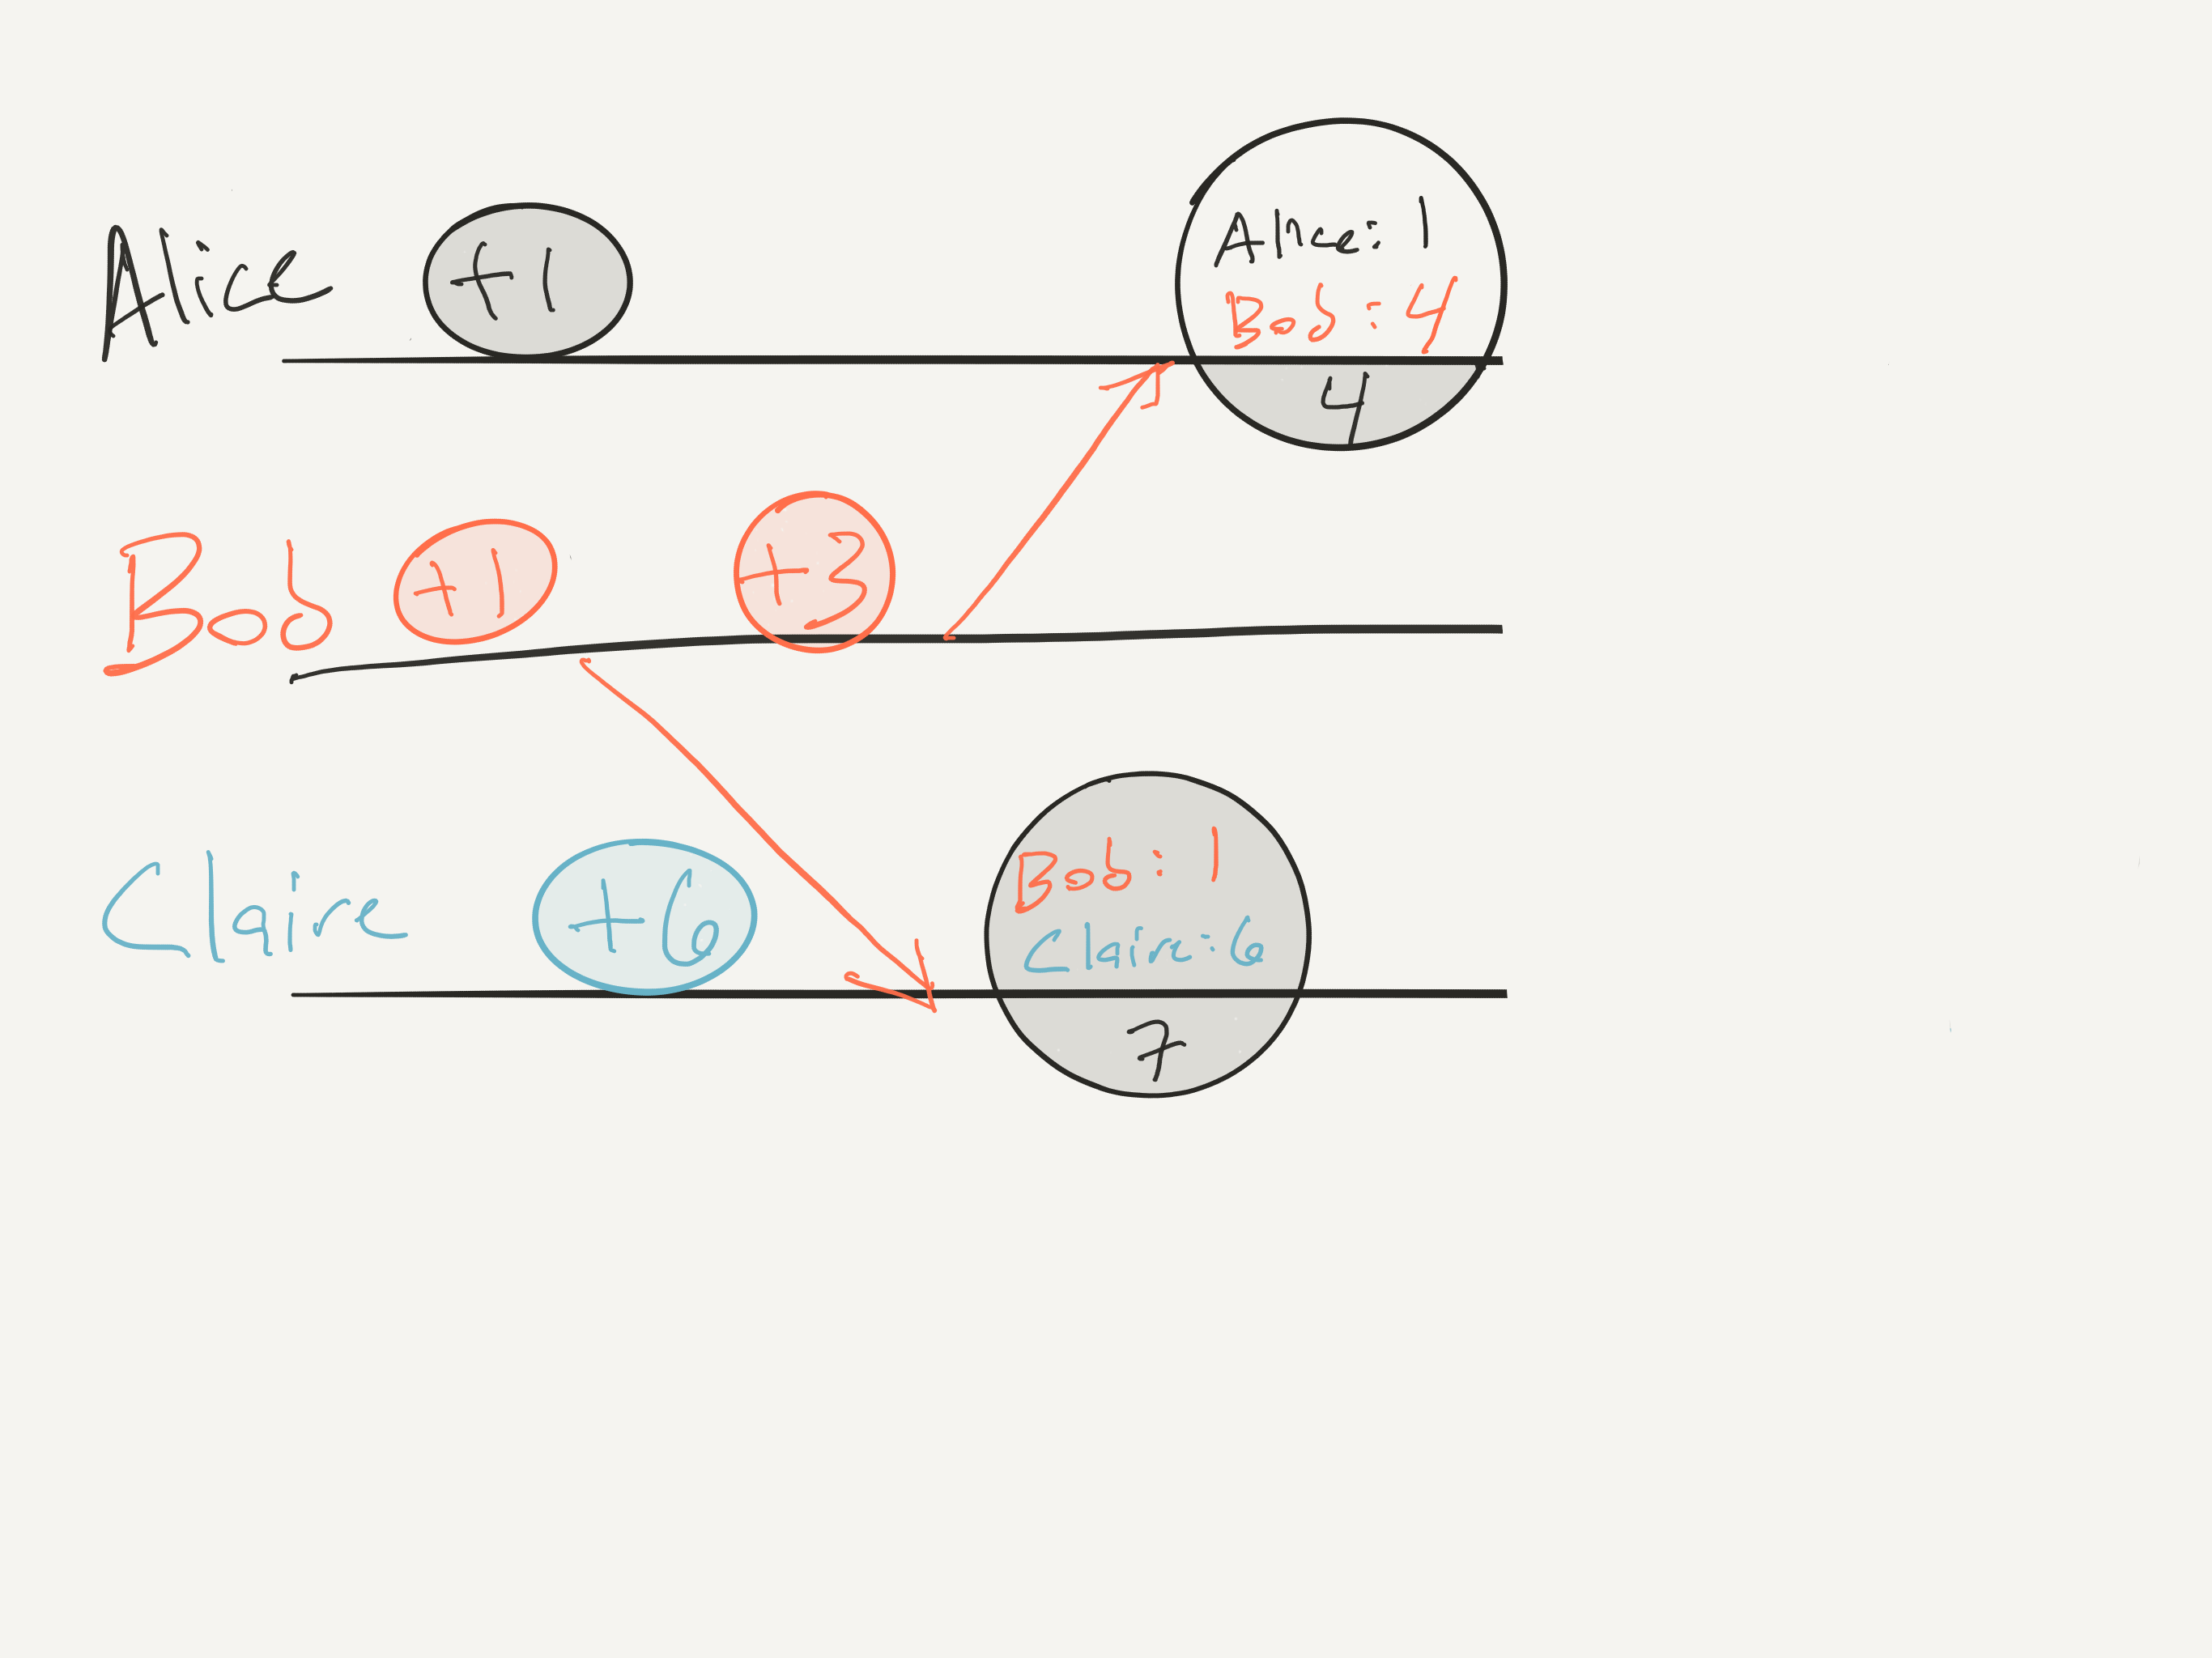 Alice
+1
Alice: 1
Bob: 4
4
Bob
+1
+3
Claire
+6
Bob: 1
Claire: 6
7